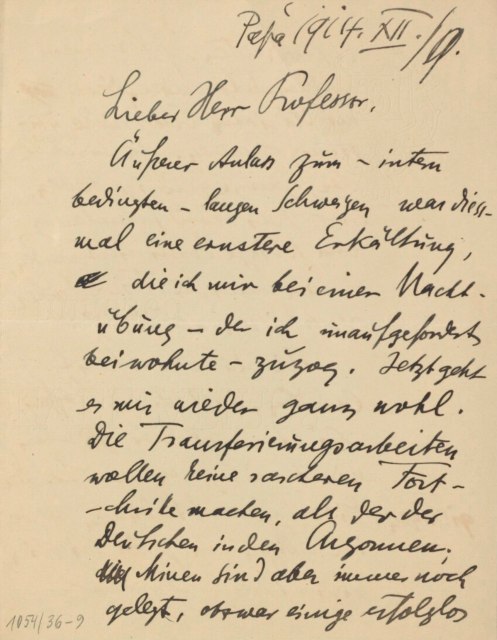 Pápa 1914. XII. /9.
Lieber Herr Professor,
Äußerer Anlass zum – intern
bedingten – langen Schweigen war dies-
mal eine ernstere Erkältung,
die ich mir bei einer Nacht-
übung – der ich unaufgefordert
beiwohnte – zuzog. Jetzt geht
es mir wieder ganz wohl.
Die Transferierungsarbeiten
wollen keine rascheren Fort-
-schritte machen, als der der
Deutschen in den Argonnen;
Minen sind aber immer noch
gelegt, obzwar einige erfolglos
1054/36-9